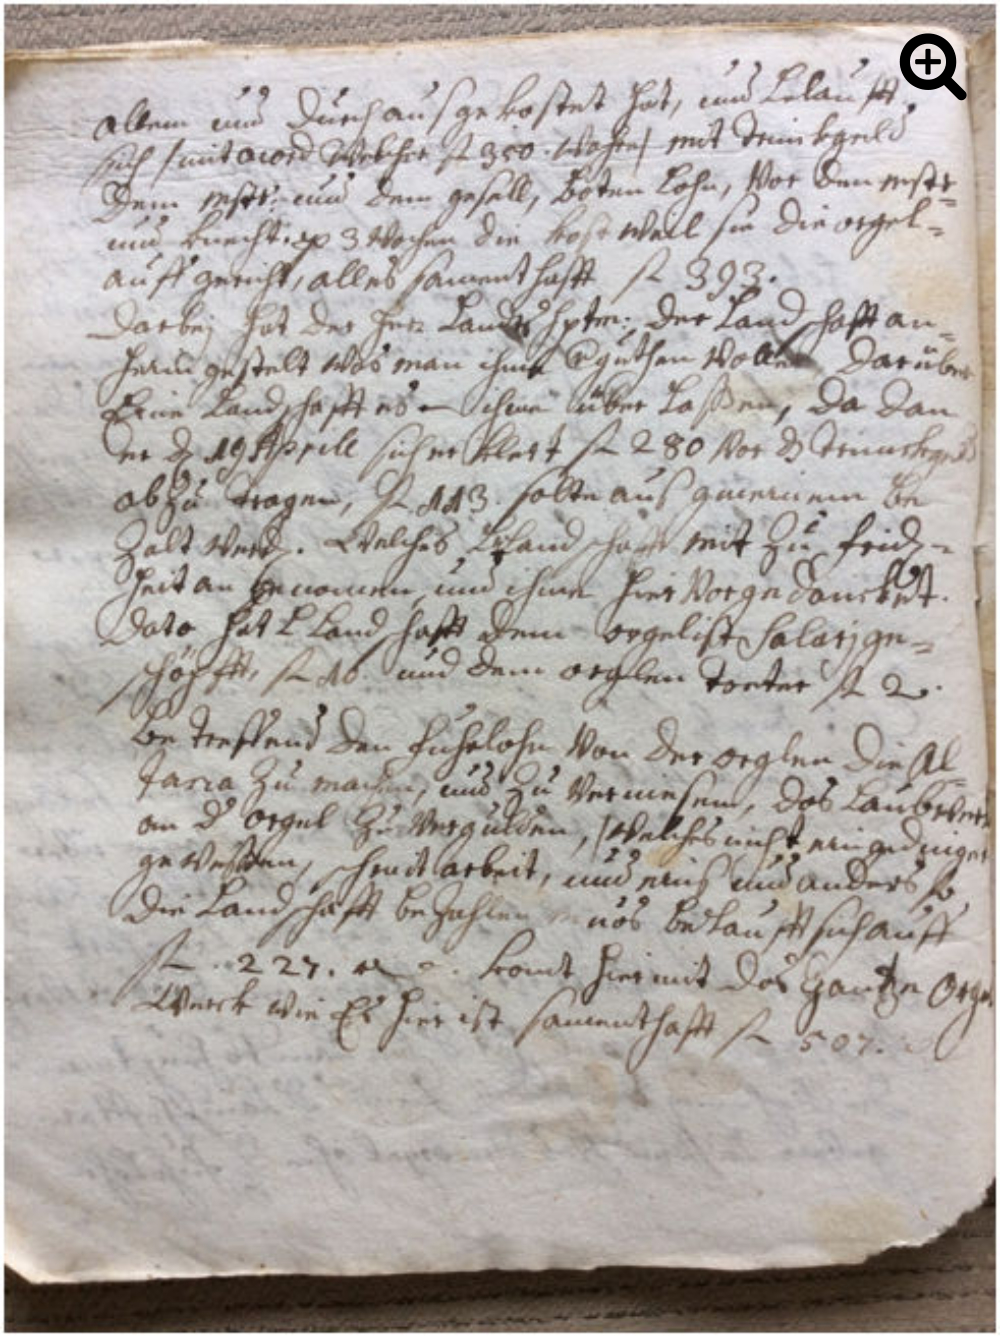 allem und durch aus gekostet hat, und belaufft
sich /: mit acord welcher fl 350. wahre/ mit trinckgeld
dem mstr: und dem gesell, boten lohn, vor den mstr
und knecht. p 3 wochen die kost weil sie die orgel-
auff gericht, alles samenthafft fl 393.
Darbej hat der Herr Landtshptm: der Landschafft an-
heim gestelt was man ihme wolle darüber
Eine Landschafft es ihme über Laßen, da dan
er d 19 Aprill sich erklert fl 280 vor d trinckgeld
ab zu tragen, fl 113. solte aus gmeinem be
zalt werd. welches Landschafft mit zu frid-
heit an genomen, und ihme hier vor gedancket.
Dato hat L Landschafft dem orgelist Salarj ge-
schöpfft, fl 16. und dem orglen tretter fl 2.
Betreffend den fuhrlohn von der orglen die Al-
taria zu machen, und zu, das Laubwerck
an d orgel zu vergulden, /welches nicht ein gedinget
gewessen, arbeit, und einis und anders so
die Landschafft bezahlen mus belaufft sich auff
fl. 227. komt hiermit das Gantze Orgel
Werck wie Es hier ist samenthafft fl 507.